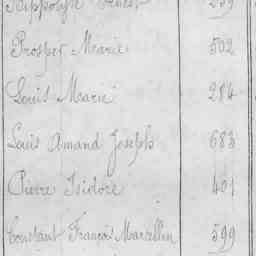 Hippolyte Ernest 259
Prosper Marie 502
Louis Marie 284
Louis Amand Joseph 683
Pierre Isidore 401
Constant François Marcellin 599